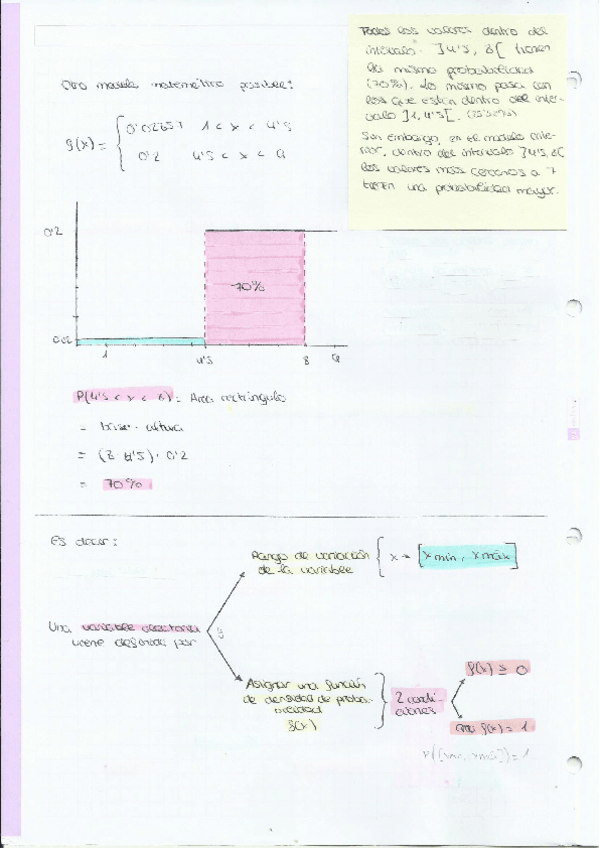 Todos los valores dentro del
intervalo ]4'5, 8[ tienen
la misma probabilidad
(70%). Lo mismo pasa con
los que están dentro del inter-
valo ]1, 4'5[.
Sin embargo, en el modelo ante-
rior, dentro del intervalo ]4'5, 8[
los valores más cercanos a 7
tienen una probabilidad mayor.
Otro modelo matemático posible:
f(x) =
1 < x < 4'5
0'2 4'5 < x < 9
0'2
70%
0'02
1 4'5 8 9
P(4'5 < x < 8) = Area rectángulo
= base · altura
= (8-4'5) · 0'2
= 70%
Es decir:
Rango de variación
de la variable
x → [x min, x máx]
Una variable aleatoria
viene definida por
y
Asignar una función
de densidad de proba-
bilidad
f(x)
2 condi-
ciones
f(x) ≥ 0
área f(x) = 1
P([min, máx]) = 1